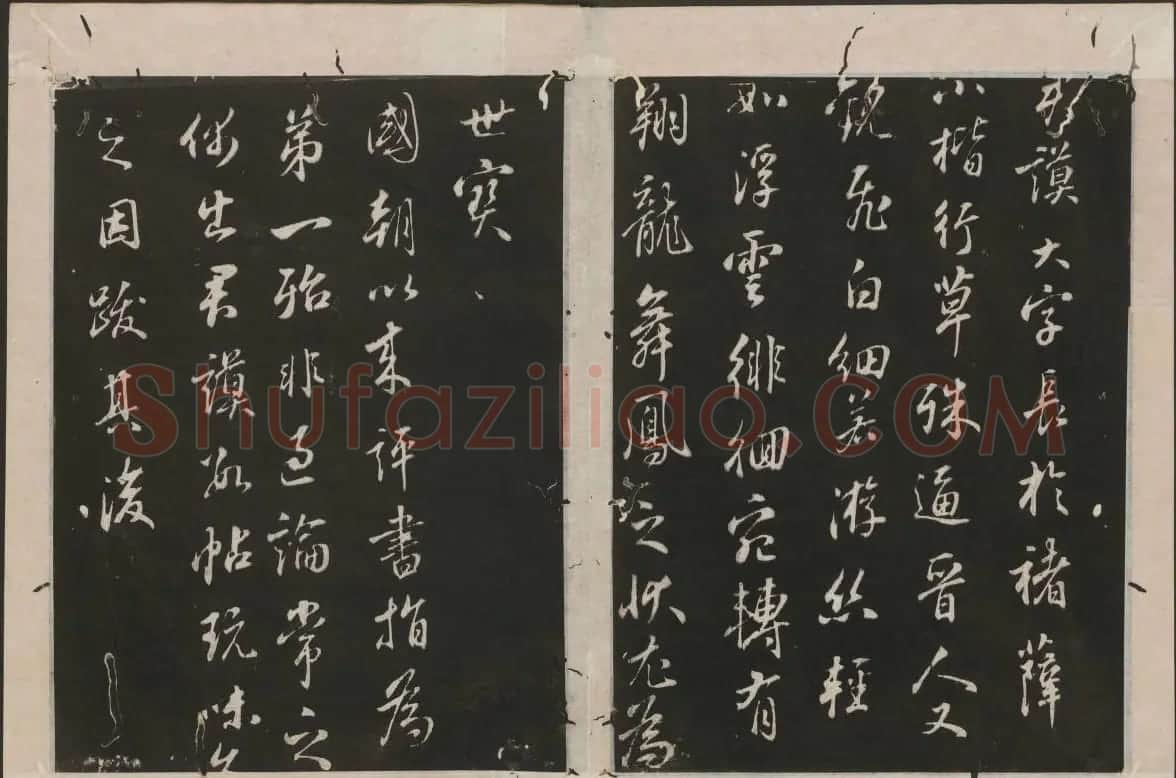 謨大字長於褚薛
小楷行草殊逼晉人又
觀飛白細若游絲輕
如浮雲徘徊宛轉有
翔龍舞鳳之狀尤為
世寶
國朝以來評書指為
第一殆非過論常之
出君謨數帖玩味久
之因跋其後
Shufaziliao.COM